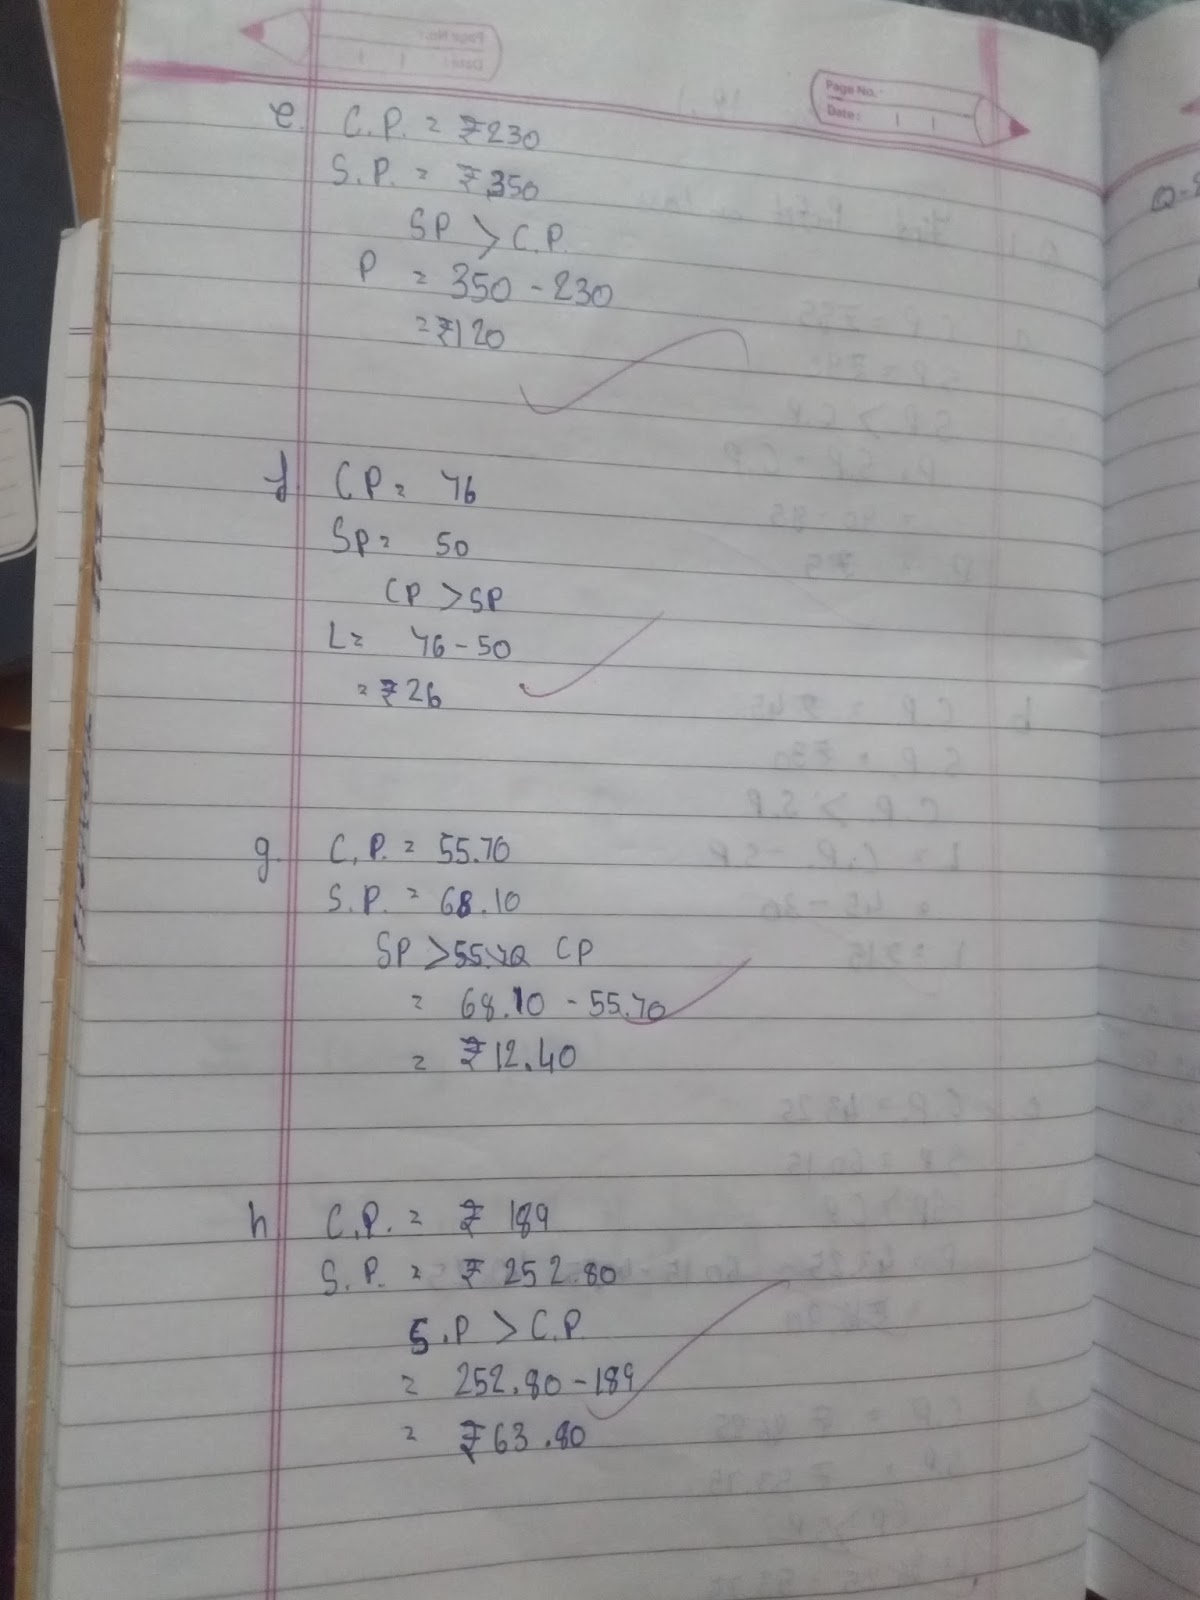 Page No.:
Date:
Page No.:
Date:
e. C.P. = ₹230
S.P. = ₹350
SP > C.P.
P = 350 - 230
= ₹120
f. CP = 76
SP = 50
CP > SP
L = 76 - 50
= ₹26
g. C.P. = 55.70
S.P. = 68.10
SP > 55.70 CP
= 68.10 - 55.70
= ₹12.40
h C.P. = ₹ 189
S.P. = ₹ 252.80
S.P > C.P.
= 252.80 - 189
= ₹63.80